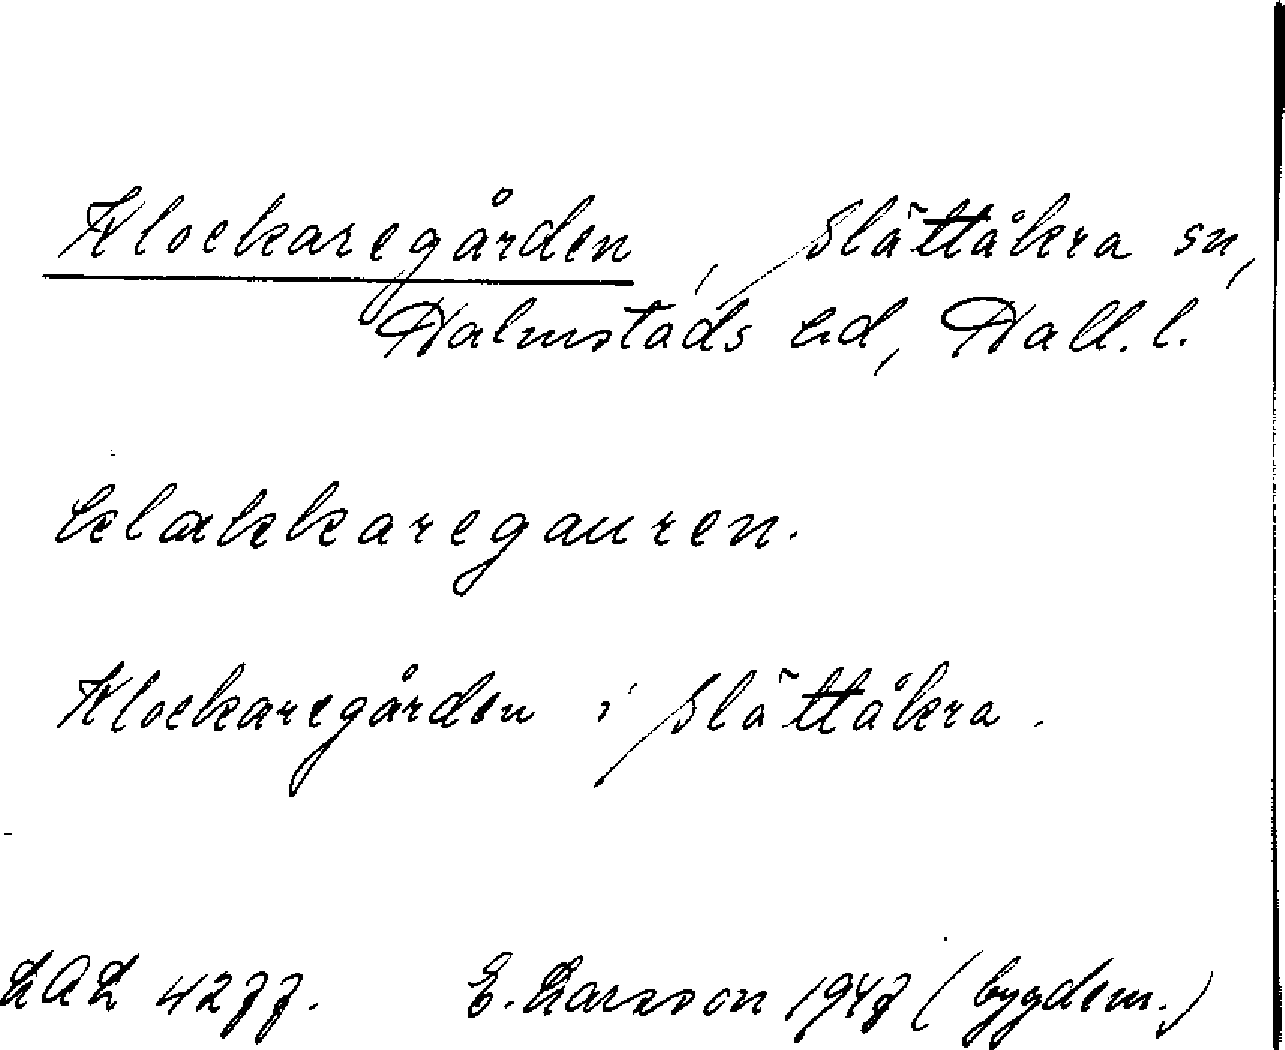 Klockaregården, Slättåkra sn,
Halmstads hd, Hall. l.
klakkaregauren.
Klockaregården i Slättåkra.
LAL 4277. E. Larsson 1947 (bygdem.)